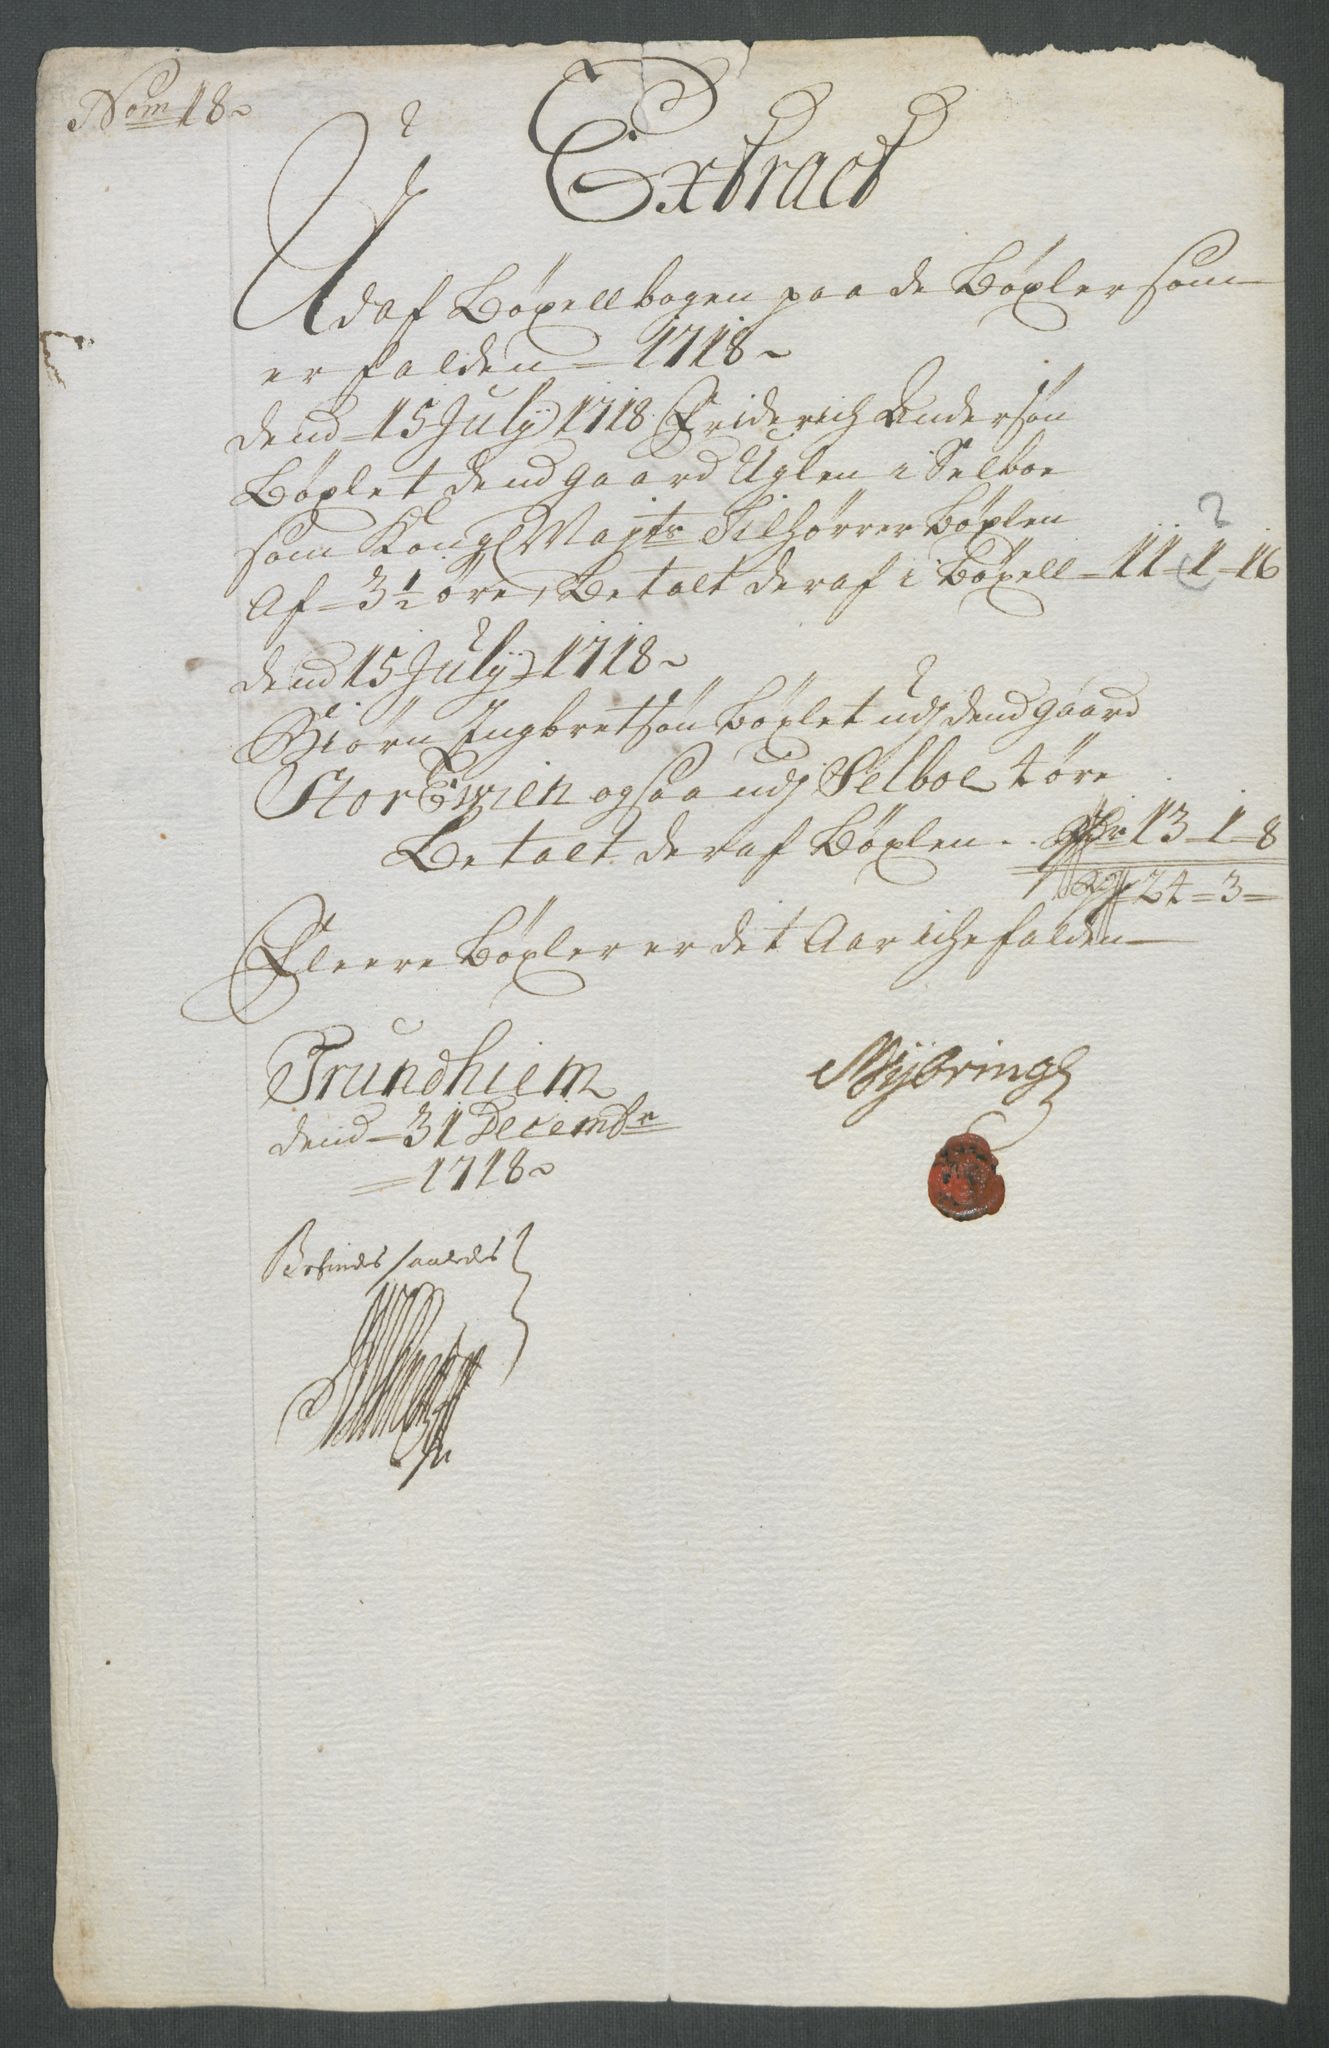 Nom 18
Extract
Udaf Böxellbogen paa de Böxler som
er falden 1718
dend 15 July 1718 Friderich Andersön
Böxlet dend gaard Uglen i Selboe
som Kongl Mayts Tilhörrer böxlen
Af 3½ öre, Betalt deraf i Böxell - 11 - 1 - 16
2
dend 15 July 1718
Biörn Ingbretsön böxlet udj dend gaard
Stor Ewien ogsaa udj Selboe 4 öre
Betalt deraf Böxlen 13 - 1 - 8
24 - 3 -
Fleere Böxler er det Aar iche falden
Trundhiem
dend 31 Decembr
1718
Befindes saaledes